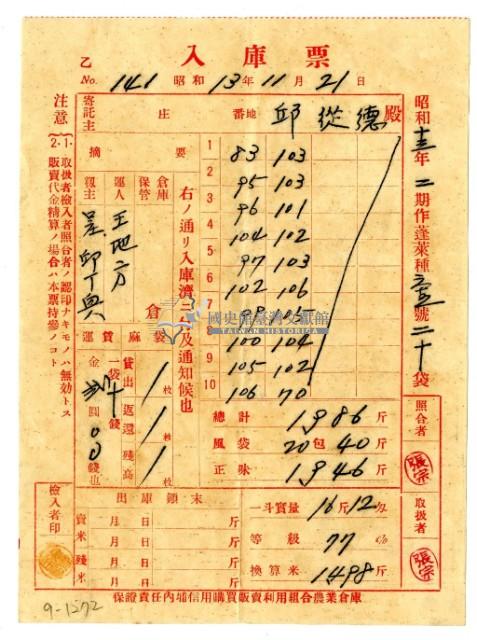 入庫票
乙
No. 141 昭和13年11月21日
寄託主 庄 番地 邱從德殿
摘要
1 83 103
2 95 103
3 96 101
4 104 102
5 97 103
6 102 106
7 98 105
8 100 104
9 105 102
10 106 70
總計 1986斤
風袋 20包 40斤
正味 1946斤
一斗實量 16斤12匁
等級 77%
換算米 1498斤
右ノ通リ入庫濟ニ付及通知候也
倉庫保管
運人
籾主
運賃
麻袋
一袋 錢
金 圓 錢也
貸出 1枚
返還 1枚
殘高 1枚
出庫顛末
賣米 月 日 斤
月 日 斤
殘米 月 日 斤
月 日 斤
昭和十三年二期作蓬萊種 號二十袋
照合者
張宗
取扱者
張宗
注意
1. 取扱者檢入者照合者ノ認印ナキモノハ無效トス
2. 販賣代金精算ノ場合ハ本票持參ノコト
檢入者印
保證責任內埔信用購買販賣利用組合農業倉庫
國史館臺灣文獻館
TAIWAN HISTORICA
9-1272